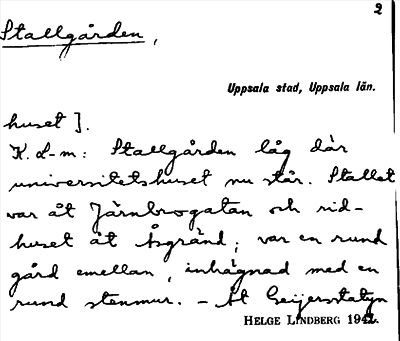 2
Stallgården,
Uppsala stad, Uppsala län.
huset].
K. L-m: Stallgården låg där
universitetshuset nu står. Stallet
var åt Järnbrogatan och rid-
huset åt Åsgränd; var en rund
gård emellan, inhägnad med en
rund stenmur. – Åt Geijersstatyn
HELGE LINDBERG 1942.